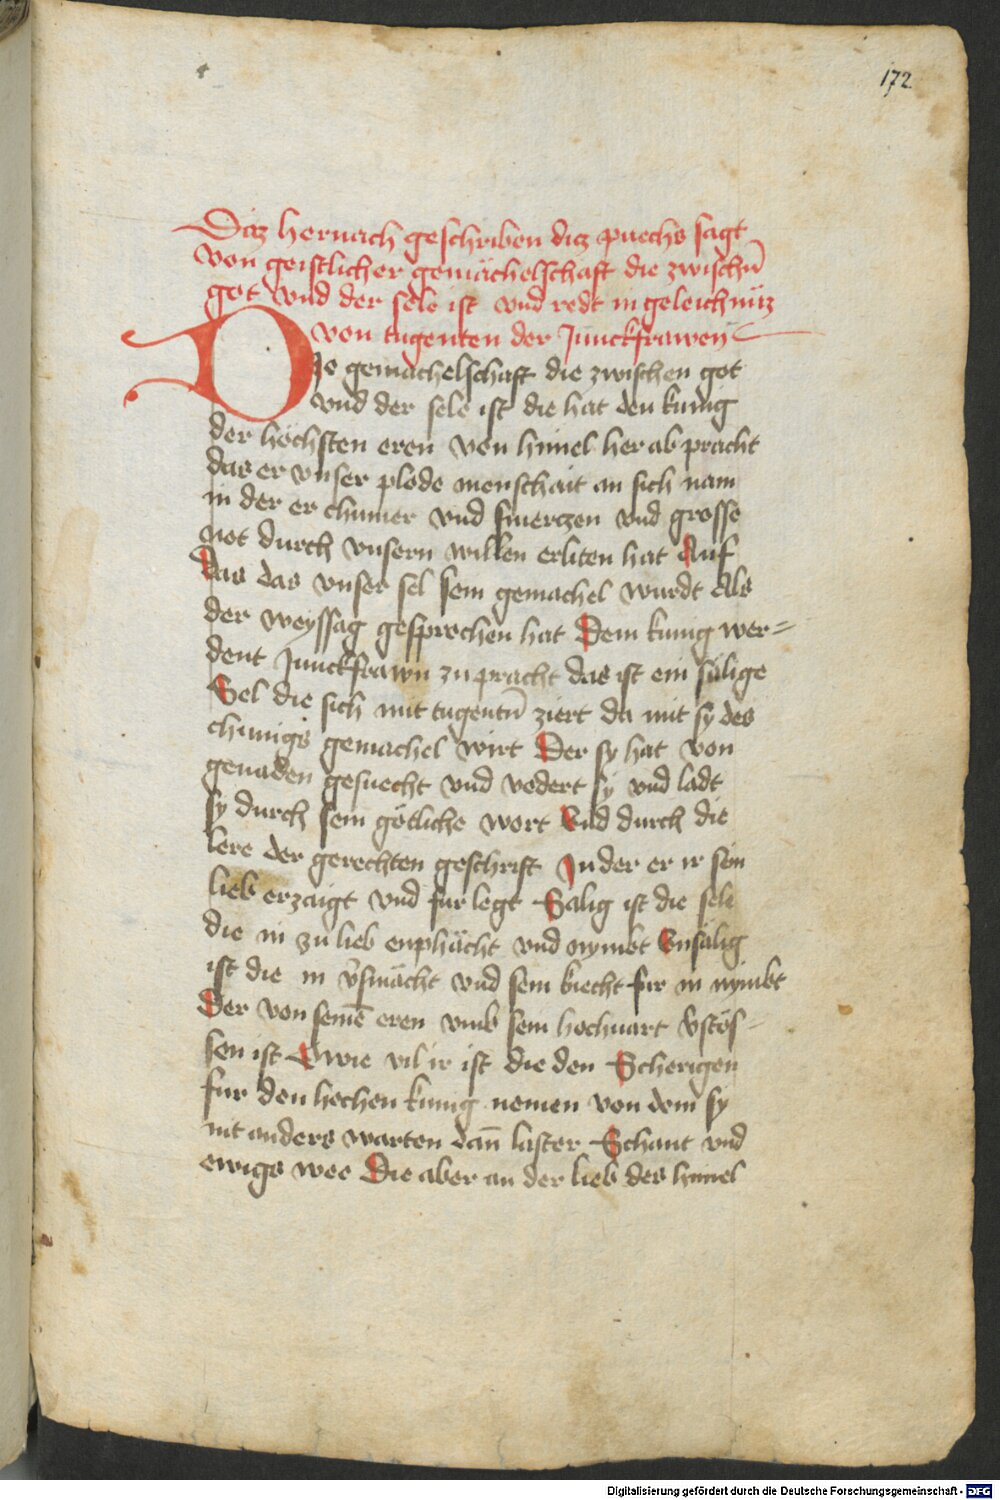 172
Ditz hernach geschriben ditz puechs sagt
von geistlicher gemächelschaft die zwischn̄
got vnd der sele ist vnd redt in geleichnüz
von tugenten der Junckfrawen
Die gemachelschaft die zwischen got
vnd der sele ist die hat den kunig
der höchsten eren von himel her ab pracht
das er vnser plode menschait an sich nam
in der er chumer vnd smerczen vnd grosse
not durch vnsern willen erliten hat Auf
Das das vnser sel sein gemachel wurdt Als
der weyssag gesprochen hat Dem kunig wer=
dent Junckfrawn zu pracht das ist ein sälige
Sel die sich mit tugentn̄ ziert da mit sy des
chunigs gemachel wirt Der sy hat von
genaden gesuecht vnd vodert sy vnd ladt
sy durch sein götliche wort Vnd durch die
lere der gerechten geschrift In der er ir sein
lieb erzaigt vnd fur legt Salig ist die sele
die in zu lieb enphächt vnd nymbt Vnsälig
ist die in v̄smächt vnd sein knecht fur in nymbt
Der von seinē eren vmb sein hochuart v̄stös-
sen ist O wie vil ir ist die den Scherigen
fur den hochen kunig nemen von dem sy
nit anders warten dan̄ laster Schant vnd
ewigs wee Die aber an der lieb des himel
Digitalisierung gefördert durch die Deutsche Forschungsgemeinschaft - DFG